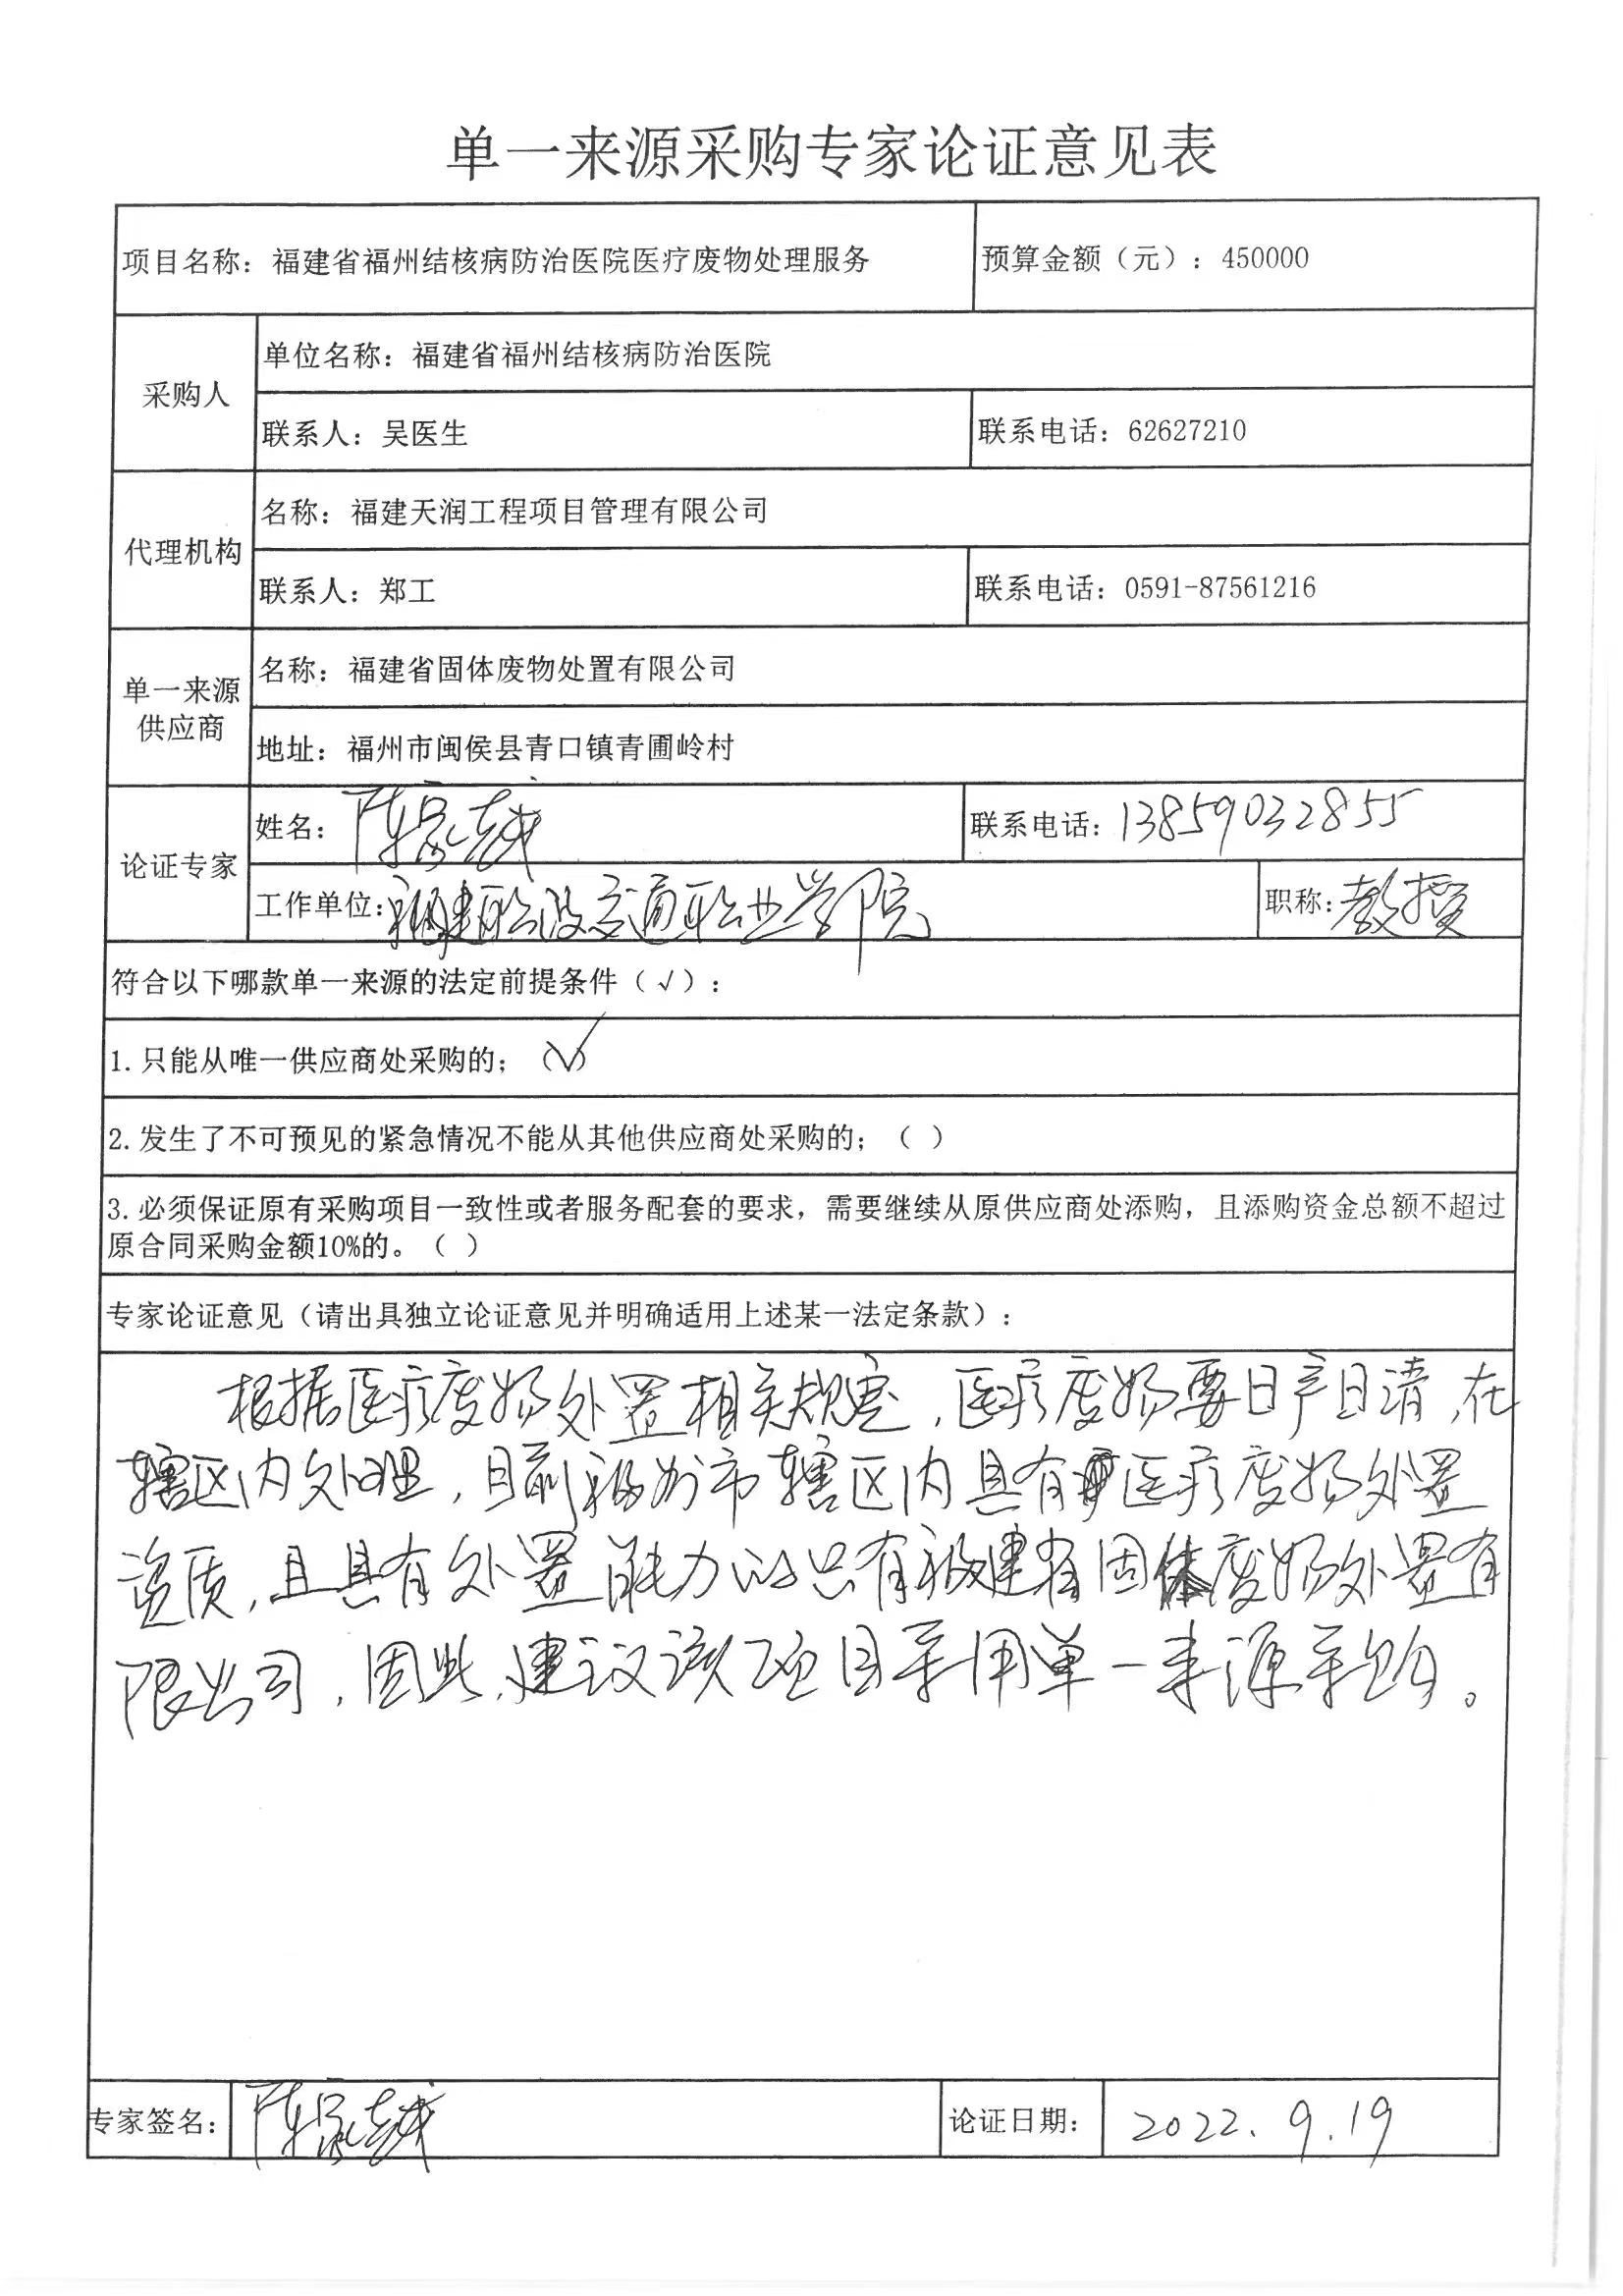 单一来源采购专家论证意见表
项目名称：福建省福州结核病防治医院医疗废物处理服务 预算金额（元）：450000
采购人
单位名称：福建省福州结核病防治医院
联系人：吴医生 联系电话：62627210
代理机构
名称：福建天润工程项目管理有限公司
联系人：郑工 联系电话：0591-87561216
单一来源
供应商
名称：福建省固体废物处置有限公司
地址：福州市闽侯县青口镇青圃岭村
论证专家
姓名：陈 越 联系电话：13859032855
工作单位：福建船政交通职业学院 职称：教授
符合以下哪款单一来源的法定前提条件（√）：
1.只能从唯一供应商处采购的；（√）
2.发生了不可预见的紧急情况不能从其他供应商处采购的；（ ）
3.必须保证原有采购项目一致性或者服务配套的要求，需要继续从原供应商处添购，且添购资金总额不超过
原合同采购金额10%的。（ ）
专家论证意见（请出具独立论证意见并明确适用上述某一法定条款）：
根据医疗废物处置相关规定，医疗废物要日产日清，在
辖区内处理，目前福州市辖区内具有医疗废物处置
资质，且具有处置能力的只有福建省固体废物处置有
限公司，因此，建议该项目采用单一来源采购。
专家签名：陈 越 论证日期：2022.9.19